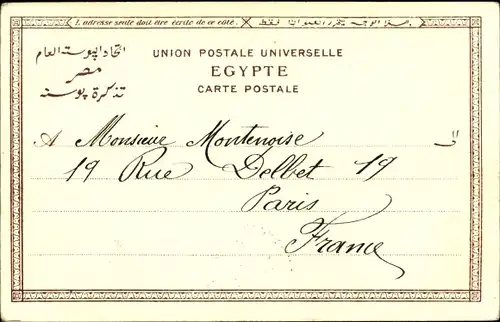 L'adresse seule doit être écrite de ce côté. هذا الوجه يحرر العنوان فقط
UNION POSTALE UNIVERSELLE
اتحاد البوستة العام
EGYPTE
مصر
CARTE POSTALE
تذكرة بوستة
A Monsieur Montenoise
الى
19 Rue Delbet 19
Paris
France